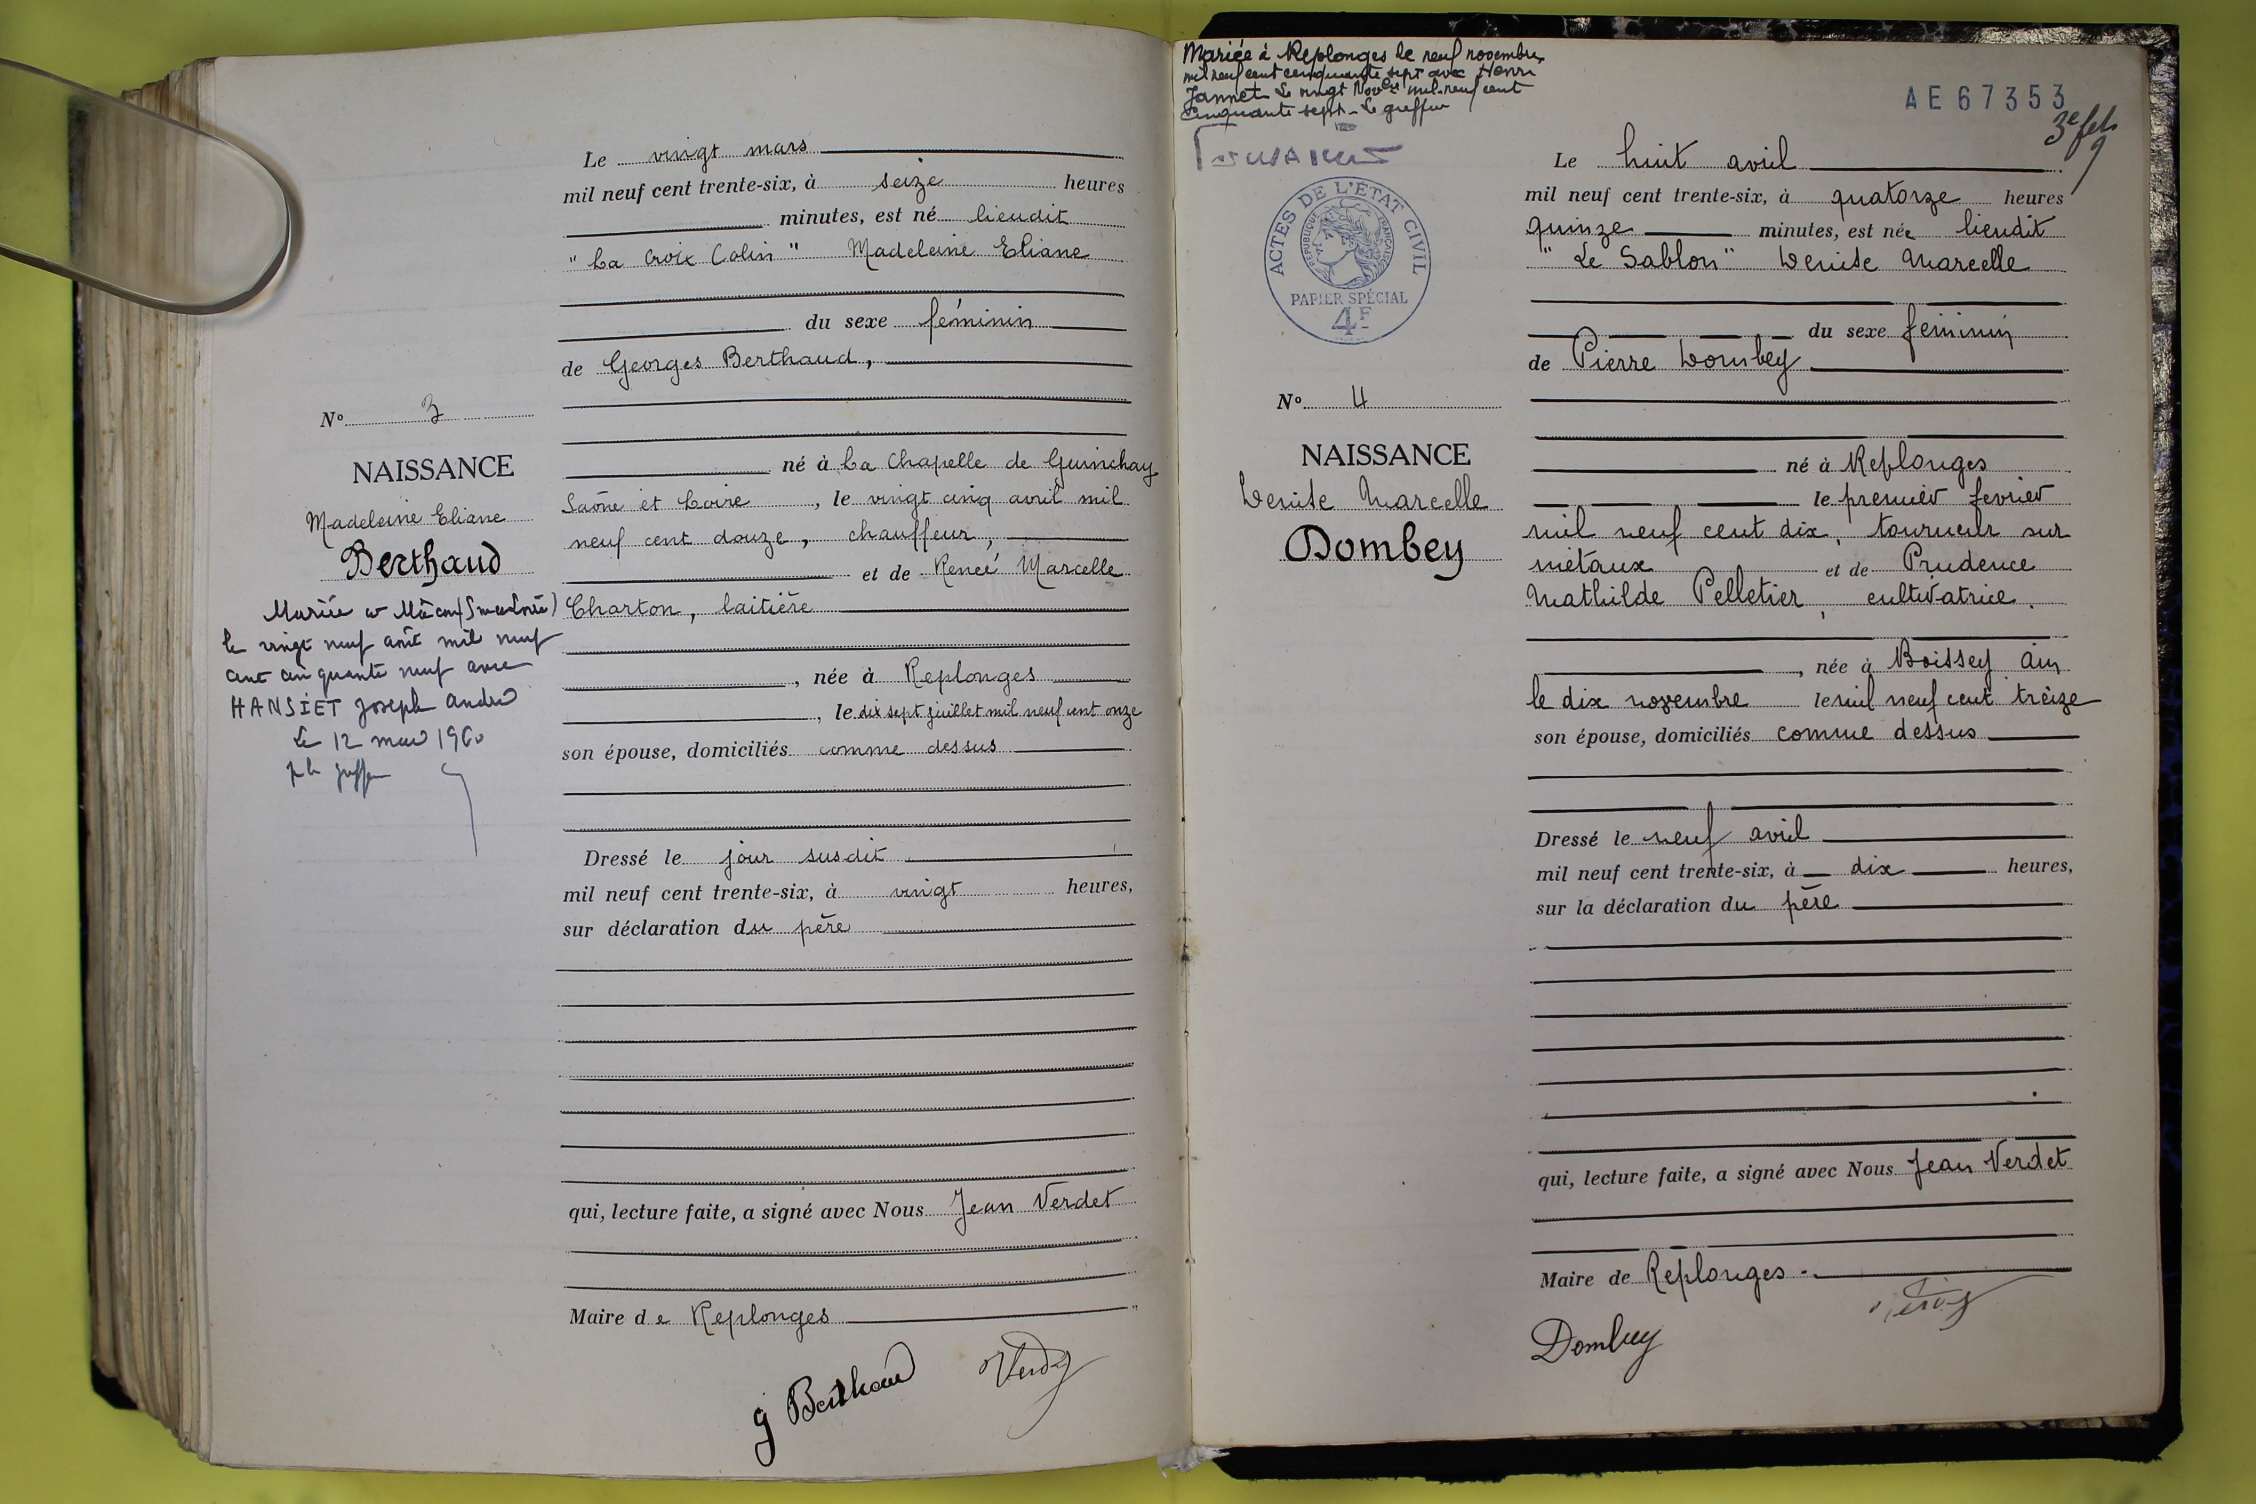 Le vingt mars
mil neuf cent trente-six, à seize heures
minutes, est né lieudit
"La Croix Colin" Madeleine Eliane
du sexe féminin
de Georges Berthaud,
né à La Chapelle de Guinchay
Saône et Loire, le vingt cinq avril mil
neuf cent douze, chauffeur,
et de Reneé Marcelle
Charton, laitière
, née à Replonges
, le dix sept juillet mil neuf cent onze
son épouse, domiciliés comme dessus
Dressé le jour susdit
mil neuf cent trente-six, à vingt heures,
sur déclaration du père
qui, lecture faite, a signé avec Nous Jean Verdet
Maire de Replonges
g Berthaud
N° 3
NAISSANCE
Madeleine Eliane
Berthaud
Mariée à Mâcon
le vingt neuf août mil neuf
cent cinquante neuf avec
HANSIET Joseph André
Le 12 1960
Mariée à Replonges le neuf novembre
mil neuf cent cinquante sept avec Henri
Jannet Le vingt Novbre mil neuf cent
Cinquante sept - Le greffier
ACTES DE L'ETAT CIVIL
REPUBLIQUE FRANÇAISE
PAPIER SPÉCIAL
4F
AE67353
3e
N° 4
NAISSANCE
Denise Marcelle
Dombey
Le huit avril
mil neuf cent trente-six, à quatorze heures
quinze minutes, est née lieudit
"Le Sablon" Denise Marcelle
du sexe féminin
de Pierre Dombey
né à Replonges
le premier fevrier
mil neuf cent dix, tourneur sur
métaux et de Prudence
Mathilde Pelletier, cultivatrice,
, née à Boissey Ain
le dix novembre le mil neuf cent treize
son épouse, domiciliés comme dessus
Dressé le neuf avril
mil neuf cent trente-six, à dix heures,
sur la déclaration du père
qui, lecture faite, a signé avec Nous Jean Verdet
Maire de Replonges -
Dombey